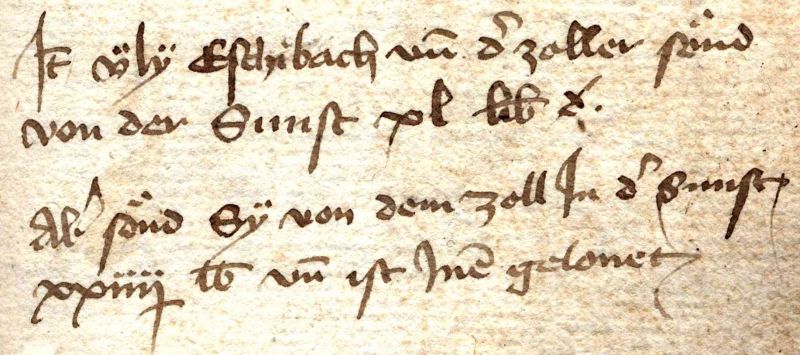 It̄ Ÿly Eschibach vn̄ dʾ zoller sönd
von der Sunst xl lib d.
Alʾ sönd Sÿ von dem zoll In dʾ Sunst
xxiiij lb vn̄ ist Inē gelonet